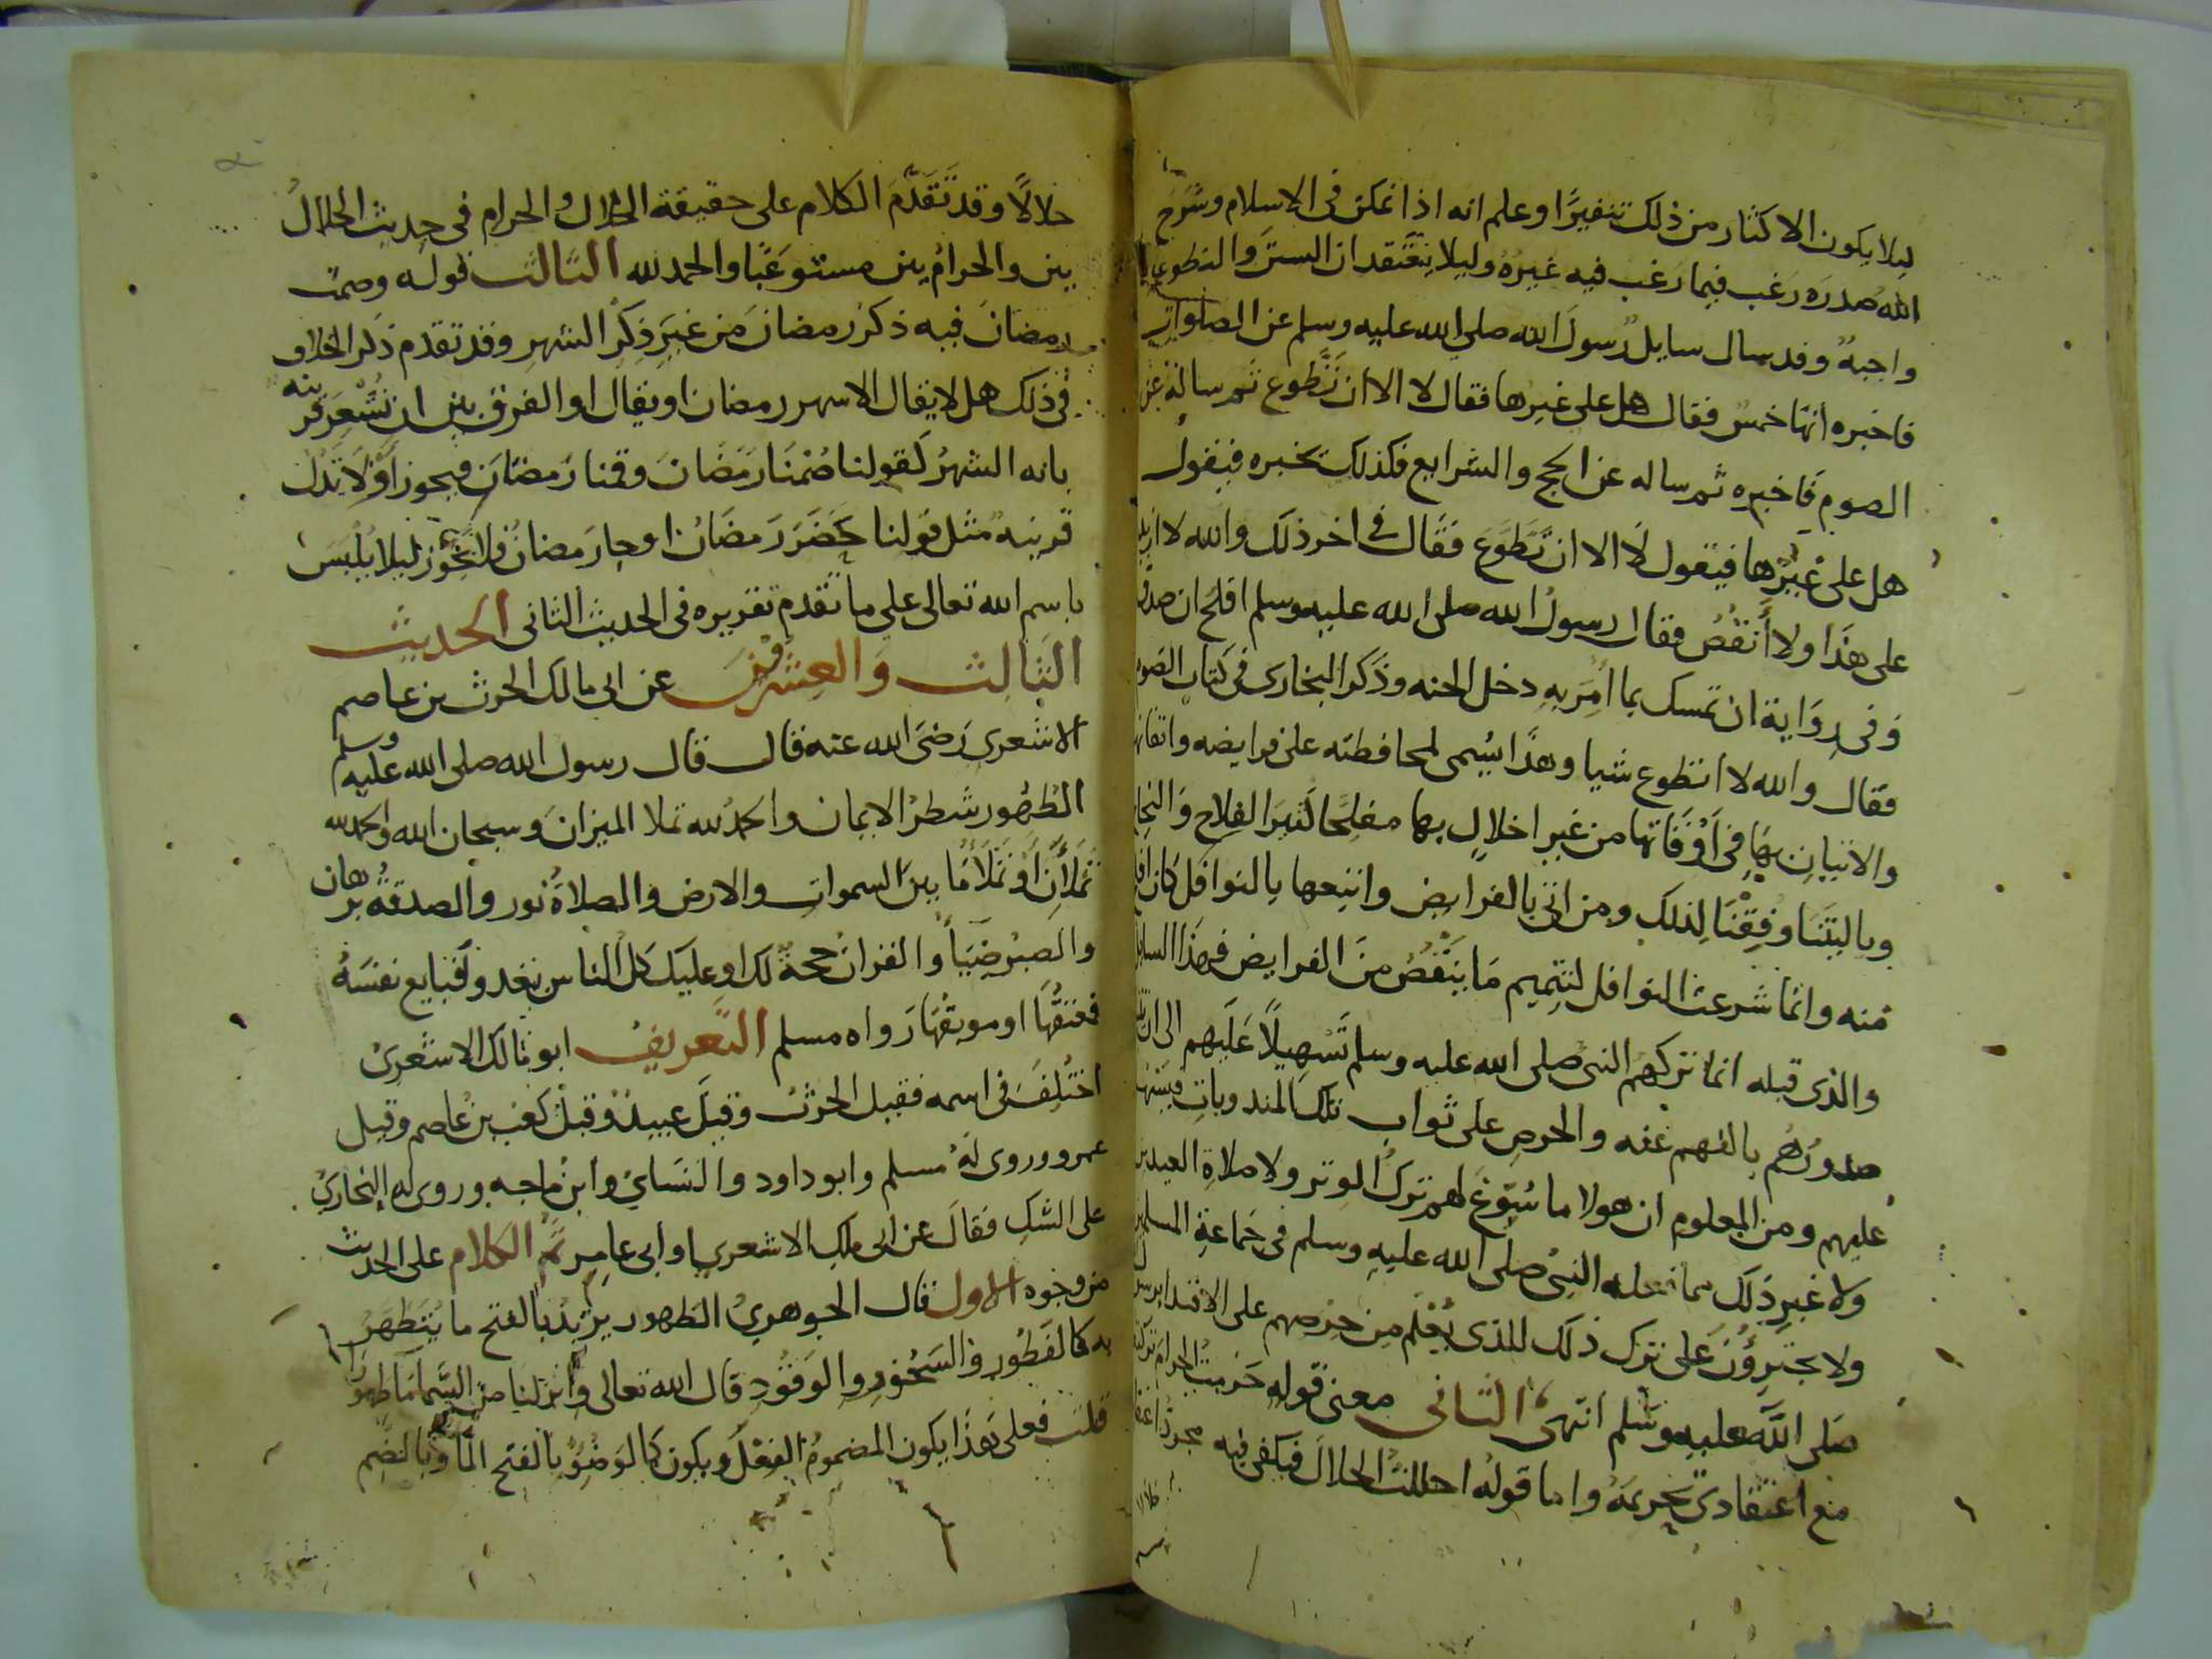 ليلا يكون الاكثار من ذلك تنفيرًا وعلم انه اذا تمكن فى الاسلام وشرح
الله صدره رغب فيما رغب فيه غيره وليلا يعتقد ان السنن والتطوعات
واجبة وقد سال سايل رسول الله صلى الله عليه وسلم عن الصلوات
فاخبره انها خمس فقال هل على غيرها فقال لا الا ان تطوع ثم ساله عن
الصوم فاخبره ثم ساله عن الحج والشرايع فكذلك يخبره فيقول
هل على غيرها فيقول لا الا ان تطوع فقال فى اخر ذلك والله لا ازيد
على هذا ولا أنقص فقال رسول الله صلى الله عليه وسلم افلح ان صدق
وفى رواية ان تمسك بما امر به دخل الجنه وذكر البخارى فى كتاب الصوم
فقال والله لا اتطوع شيا وهذا يسمى لمحافظته على فرايضه واتقانها
والاتيان بها فى أوقاتها من غير اخلال بها مفلحا كثير الفلاح والنجاح
وياليتنا وفقنا لذلك ومن اتى بالفرايض واتبعها بالنوافل كان افلح
منه وانما شرعت النوافل لتتميم ما ينقص من الفرايض فهذا السايل
والذى قبله انما تركهم النبى صلى الله عليه وسلم تسهيلاً عليهم الى ان
صدورهم بالفهم عنه والحرص على ثواب تلك المندوبات
عليهم ومن المعلوم ان هولا ما سوغ لهم ترك الوتر ولا صلاة العيدين
ولا غير ذلك مما فعله النبى صلى الله عليه وسلم فى جماعة المسلمين
ولا يجترؤن على ترك ذلك للذى يعلم من حرصهم على الاقتدا
صلى الله عليه وسلم انتهى الثانى معنى قوله حرمت الحرام تركته
مع اعتقادى تحريمه واما قوله احللت الحلال فيكفى فيه مجرد
حلالاً وقد تقدم الكلام على حقيقة الحلال والحرام فى حديث الحلال
بين والحرام بين مستوعبًا والحمد لله الثالث قوله وصمت
رمضان فيه ذكر رمضان من غير ذكر الشهر وقد تقدم ذكر الخلاف
فى ذلك هل لا يقال الا شهر رمضان او يقال او الفرق بين ان تشعر قرينه
بانه الشهر كقولنا صمنا رمضان وقمنا رمضان فيجوز أو لا تدل
قرينه مثل قولنا حضر رمضان او جا رمضان فلا يجوز ليلا يلبس
باسم الله تعالى على ما تقدم تقريره فى الحديث الثانى الحديث
الثالث والعشرون عن ابى مالك الحرث بن عاصم
الاشعرى رضى الله عنه قال قال رسول الله صلى الله عليه وسلم
الطهور شطر الايمان والحمد لله تملا الميزان وسبحان الله والحمد لله
تملأن أو تملأ ما بين السموات والارض والصلاة نور والصدقة برهان
والصبر ضيأ والقران حجة لك او عليك كل الناس يغدو فبايع نفسه
فمعتقها او موبقها رواه مسلم التعريف ابو مالك الاشعرى
اختلف فى اسمه فقيل الحرث وقيل عبيد وقيل كعب بن عاصم وقيل
عمرو وروى له مسلم وابو داود والنساى وابن ماجه وروى له البخارى
على الشك فقال عن ابى ملك الاشعرى او ابى عامر ثم الكلام على الحديث
من وجوه الاول قال الجوهرى الطهور يريد بالفتح ما يتطهر
به كالفطور والسحور والوقود قال الله تعالى وانزلنا من السما ما طهورا
قلت فعلى هذا يكون المضموم الفعل ويكون كالوضؤ بالفتح الما وبالضم